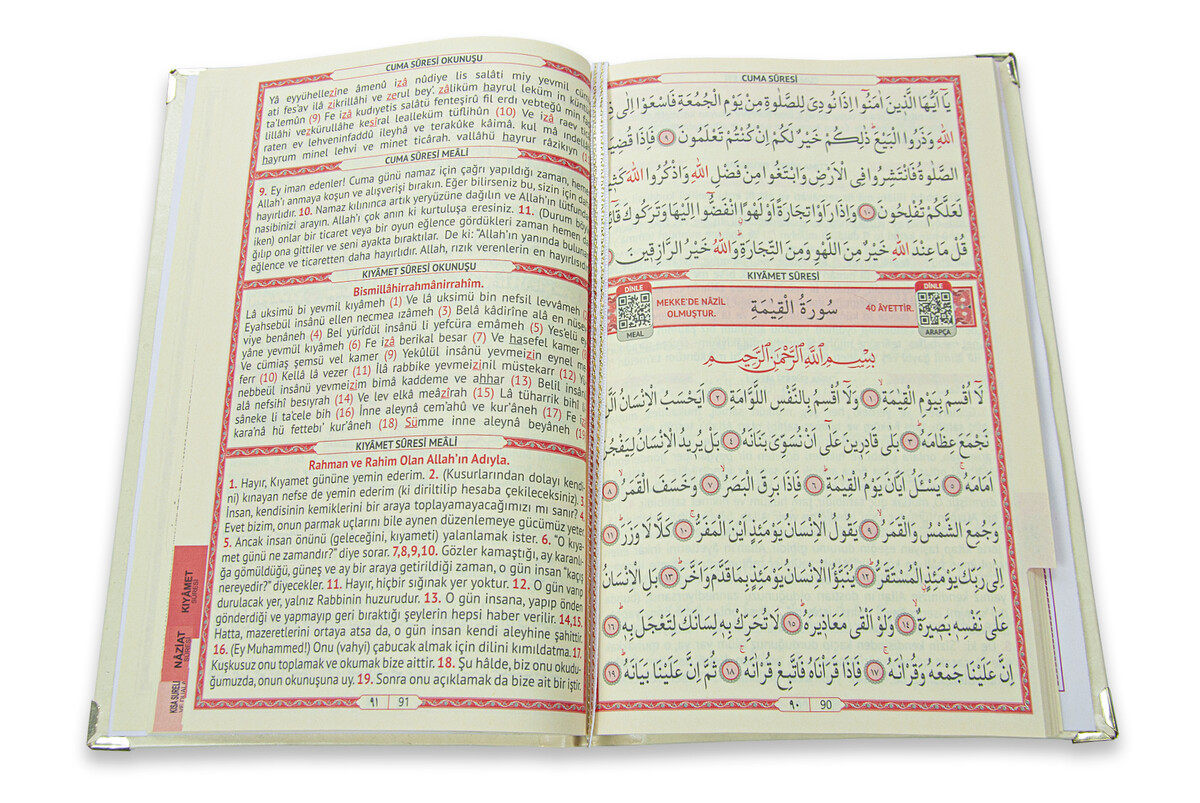 CUMA SÛRESİ
يَا اَيُّهَا الَّذِينَ اٰمَنُوا اِذَا نُودِيَ لِلصَّلٰوةِ مِنْ يَوْمِ الْجُمُعَةِ فَاسْعَوْا اِلٰى
اللّٰهِ وَذَرُوا الْبَيْعَ ذٰلِكُمْ خَيْرٌ لَكُمْ اِنْ كُنْتُمْ تَعْلَمُونَ ﴿٩﴾ فَاِذَا
الصَّلٰوةُ فَانْتَشِرُوا فِي الْاَرْضِ وَابْتَغُوا مِنْ فَضْلِ اللّٰهِ وَاذْكُرُوا اللّٰهَ
لَعَلَّكُمْ تُفْلِحُونَ ﴿١٠﴾ وَاِذَا رَاَوْا تِجَارَةً اَوْ لَهْوًا انْفَضُّوا اِلَيْهَا وَتَرَكُوكَ
قُلْ مَا عِنْدَ اللّٰهِ خَيْرٌ مِنَ اللَّهْوِ وَمِنَ التِّجَارَةِ وَاللّٰهُ خَيْرُ الرَّازِقِينَ
KIYÂMET SÛRESİ
DİNLE
MEAL
MEKKE'DE NÂZİL
OLMUŞTUR.
سُورَةُ الْقِيٰمَةِ
40 ÂYETTİR.
DİNLE
ARAPÇA
بِسْمِ اللّٰهِ الرَّحْمٰنِ الرَّحِيمِ
لَا اُقْسِمُ بِيَوْمِ الْقِيٰمَةِ ﴿١﴾ وَلَا اُقْسِمُ بِالنَّفْسِ اللَّوَّامَةِ ﴿٢﴾ اَيَحْسَبُ الْاِنْسَانُ
نَجْمَعَ عِظَامَهُ ﴿٣﴾ بَلٰى قَادِرِينَ عَلٰى اَنْ نُسَوِّيَ بَنَانَهُ ﴿٤﴾ بَلْ يُرِيدُ الْاِنْسَانُ لِيَفْجُرَ
اَمَامَهُ ﴿٥﴾ يَسْـَٔلُ اَيَّانَ يَوْمُ الْقِيٰمَةِ ﴿٦﴾ فَاِذَا بَرِقَ الْبَصَرُ ﴿٧﴾ وَخَسَفَ الْقَمَرُ ﴿٨﴾
وَجُمِعَ الشَّمْسُ وَالْقَمَرُ ﴿٩﴾ يَقُولُ الْاِنْسَانُ يَوْمَئِذٍ اَيْنَ الْمَفَرُّ ﴿١٠﴾ كَلَّا لَا وَزَرَ ﴿١١﴾
اِلٰى رَبِّكَ يَوْمَئِذٍ الْمُسْتَقَرُّ ﴿١٢﴾ يُنَبَّؤُا الْاِنْسَانُ يَوْمَئِذٍ بِمَا قَدَّمَ وَاَخَّرَ ﴿١٣﴾ بَلِ الْاِنْسَانُ
عَلٰى نَفْسِهِ بَصِيرَةٌ ﴿١٤﴾ وَلَوْ اَلْقٰى مَعَاذِيرَهُ ﴿١٥﴾ لَا تُحَرِّكْ بِهِ لِسَانَكَ لِتَعْجَلَ بِهِ ﴿١٦﴾
اِنَّ عَلَيْنَا جَمْعَهُ وَقُرْاٰنَهُ ﴿١٧﴾ فَاِذَا قَرَاْنَاهُ فَاتَّبِعْ قُرْاٰنَهُ ﴿١٨﴾ ثُمَّ اِنَّ عَلَيْنَا بَيَانَهُ ﴿١٩﴾
٩٠ 90
CUMA SÛRESİ OKUNUŞU
Yâ eyyühellezîne âmenû izâ nûdiye lis salâti miy yevmil
ati fes'av ilâ zikrillâhi ve zerul bey'. zâliküm hayrul leküm in küntü
ta'lemûn (9) Fe izâ kudıyetis salâtü fenteşirû fil erdı vebteğû min
lillâhi vezkürullâhe kesîral lealleküm tüflihûn (10) Ve izâ raev
raten ev lehveninfaddû ileyhâ ve terakûke kâimâ. kul mâ indellâ
hayrum minel lehvi ve minet ticârah. vallâhü hayrur râzikıyn
CUMA SÛRESİ MEÂLİ
9. Ey iman edenler! Cuma günü namaz için çağrı yapıldığı zaman, hemen
Allah'ı anmaya koşun ve alışverişi bırakın. Eğer bilirseniz bu, sizin için daha
hayırlıdır. 10. Namaz kılınınca artık yeryüzüne dağılın ve Allah'ın lütfundan
nasibinizi arayın. Allah'ı çok anın ki kurtuluşa eresiniz. 11. (Durum böy
iken) onlar bir ticaret veya bir oyun eğlence gördükleri zaman hemen da
ğılıp ona gittiler ve seni ayakta bıraktılar. De ki: "Allah'ın yanında bulunan
eğlence ve ticaretten daha hayırlıdır. Allah, rızık verenlerin en hayırlısıdır
KIYÂMET SÛRESİ OKUNUŞU
Bismillâhirrahmânirrahîm.
Lâ uksimü bi yevmil kıyâmeh (1) Ve lâ uksimü bin nefsil levvâmeh
Eyahsebül insânü ellen necmea ızâmeh (3) Belâ kâdirîne alâ en nüsev
viye benâneh (4) Bel yürîdül insânü li yefcüra emâmeh (5) Yes'elü
yâne yevmül kıyâmeh (6) Fe izâ berikal besar (7) Ve hasefel kamer
Ve cümiaş şemsü vel kamer (9) Yekûlül insânü yevmeizin eynel
ferr (10) Kellâ lâ vezer (11) İlâ rabbike yevmeizinil müstekarr (12)
nebbeül insânü yevmeizim bimâ kaddeme ve ahhar (13) Belil insân
alâ nefsihî besıyrah (14) Ve lev elkâ meâzîrah (15) Lâ tüharrik bihî
sâneke li ta'cele bih (16) İnne aleynâ cem'ahû ve kur'âneh (17) Fe
kara'nâ hü fettebı' kur'âneh (18) Sümme inne aleynâ beyâneh (19
KIYÂMET SÛRESİ MEÂLİ
Rahman ve Rahim Olan Allah'ın Adıyla.
1. Hayır, Kıyamet gününe yemin ederim. 2. (Kusurlarından dolayı kendi
ni) kınayan nefse de yemin ederim (ki diriltilip hesaba çekileceksiniz). 3.
İnsan, kendisinin kemiklerini bir araya toplayamayacağımızı mı sanır? 4
Evet bizim, onun parmak uçlarını bile aynen düzenlemeye gücümüz yeter.
5. Ancak insan önünü (geleceğini, kıyameti) yalanlamak ister. 6. "O kıya-
met günü ne zamandır?" diye sorar. 7,8,9,10. Gözler kamaştığı, ay karanlı-
ğa gömüldüğü, güneş ve ay bir araya getirildiği zaman, o gün insan "kaçış
nereyedir?" diyecekler. 11. Hayır, hiçbir sığınak yer yoktur. 12. O gün varıp
durulacak yer, yalnız Rabbinin huzurudur. 13. O gün insana, yapıp önden
gönderdiği ve yapmayıp geri bıraktığı şeylerin hepsi haber verilir. 14,15.
Hatta, mazeretlerini ortaya atsa da, o gün insan kendi aleyhine şahittir.
16. (Ey Muhammed!) Onu (vahyi) çabucak almak için dilini kımıldatma. 17.
Kuşkusuz onu toplamak ve okumak bize aittir. 18. Şu hâlde, biz onu okudu-
ğumuzda, onun okunuşuna uy. 19. Sonra onu açıklamak da bize ait bir iştir.
٩١ 91
KIYÂMET
SÛRESİ
NÂZİAT
KISA SÛRELER